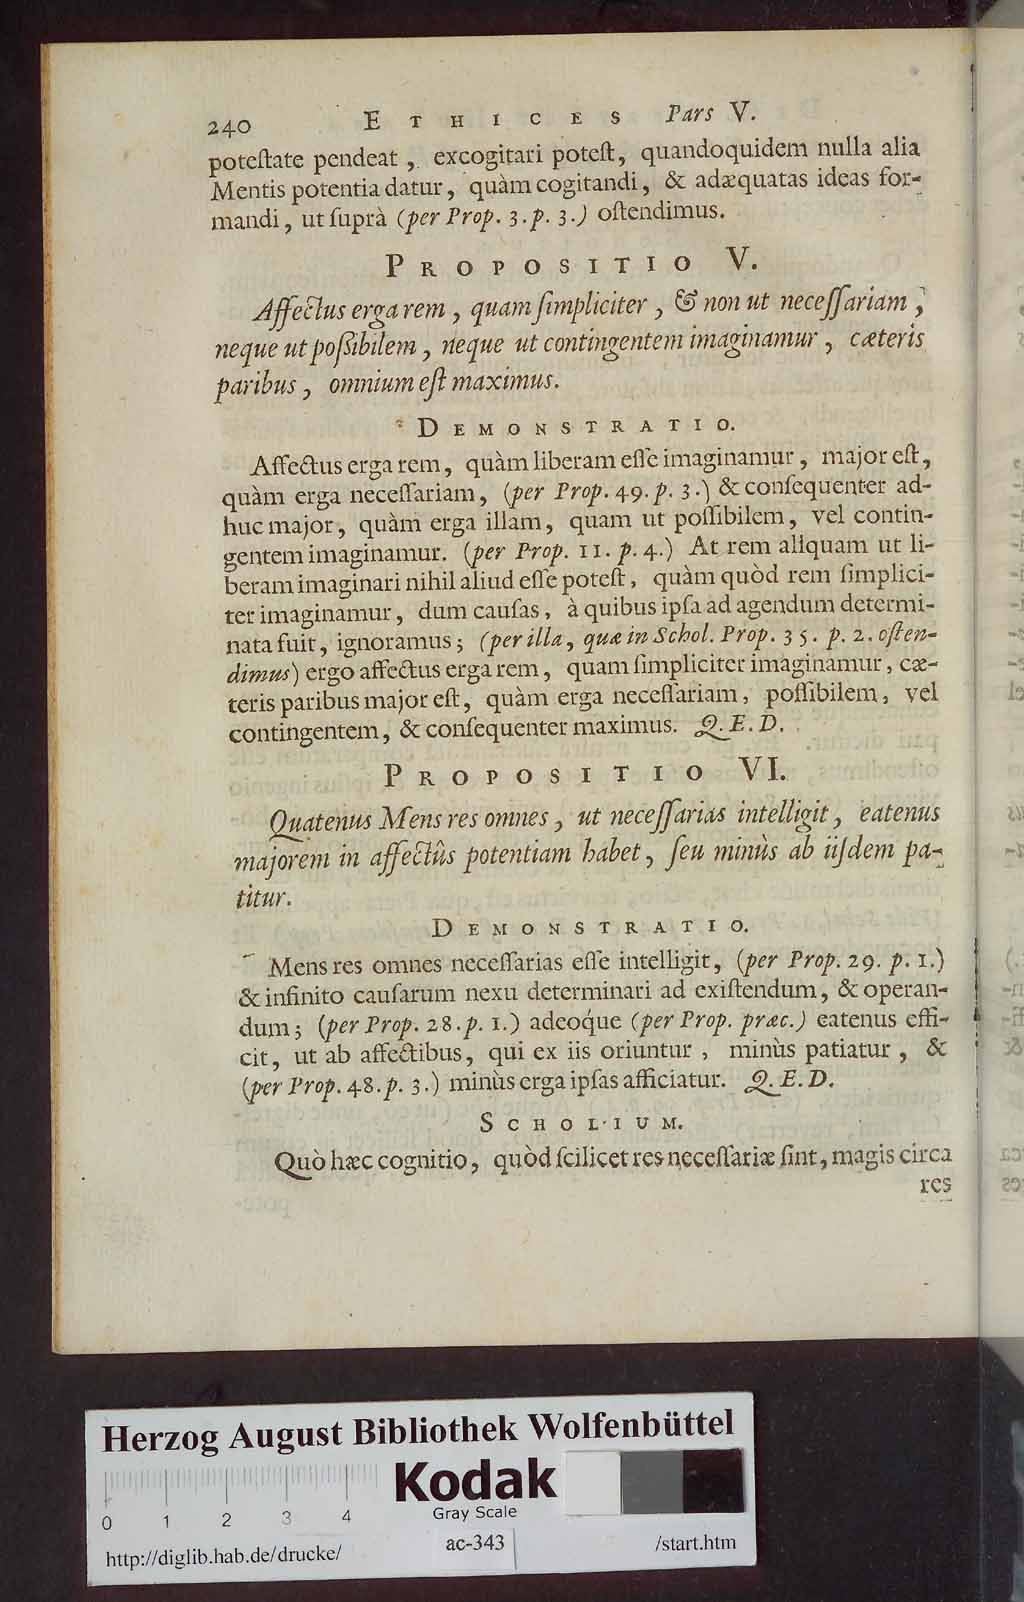 240 ETHICES Pars V.
poteſtate pendeat, excogitari poteſt, quandoquidem nulla alia
Mentis potentia datur, quàm cogitandi, & adæquatas ideas for-
mandi, ut ſuprà (per Prop. 3. p. 3.) oſtendimus.
PROPOSITIO V.
Affectus erga rem, quam ſimpliciter, & non ut neceſſariam,
neque ut poſſibilem, neque ut contingentem imaginamur, cæteris
paribus, omnium eſt maximus.
DEMONSTRATIO.
Affectus erga rem, quàm liberam eſſe imaginamur, major eſt,
quàm erga neceſſariam, (per Prop. 49. p. 3.) & conſequenter ad-
huc major, quàm erga illam, quam ut poſſibilem, vel contin-
gentem imaginamur. (per Prop. 11. p. 4.) At rem aliquam ut li-
beram imaginari nihil aliud eſſe poteſt, quàm quòd rem ſimplici-
ter imaginamur, dum cauſas, à quibus ipſa ad agendum determi-
nata fuit, ignoramus; (per illa, quæ in Schol. Prop. 35. p. 2. oſten-
dimus) ergo affectus erga rem, quam ſimpliciter imaginamur, cæ-
teris paribus major eſt, quàm erga neceſſariam, poſſibilem, vel
contingentem, & conſequenter maximus. Q.E.D.
PROPOSITIO VI.
Quatenus Mens res omnes, ut neceſſarias intelligit, eatenus
majorem in affectûs potentiam habet, ſeu minùs ab iiſdem pa-
titur.
DEMONSTRATIO.
Mens res omnes neceſſarias eſſe intelligit, (per Prop. 29. p. 1.)
& infinito cauſarum nexu determinari ad exiſtendum, & operan-
dum; (per Prop. 28. p. 1.) adeoq́ue (per Prop. præc.) eatenus effi-
cit, ut ab affectibus, qui ex iis oriuntur, minùs patiatur, &
(per Prop. 48. p. 3.) minùs erga ipſas afficiatur. Q.E.D.
SCHOLIUM.
Quò hæc cognitio, quòd ſcilicet res neceſſariæ ſint, magis circa
res
Herzog August Bibliothek Wolfenbüttel
Kodak
Gray Scale
0 1 2 3 4
http://diglib.hab.de/drucke/ ac-343 /start.htm